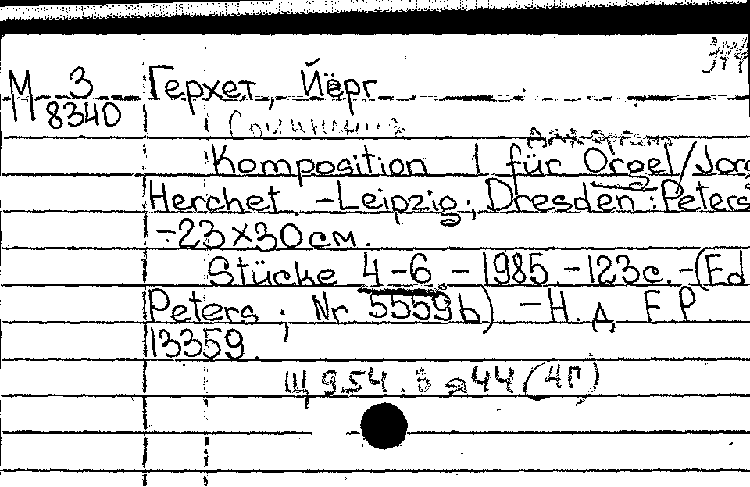 М 3 Герхет, Йёрг
8340
Сочинения
для органа
Komposition 1 für Orgel/Jorg
Herchet. -Leipzig; Dresden: Peters
-23x30см.
Stücke 4-6 - 1985 -123с.-(Ed
Peters ; Nr 5559b) -Н. д. E.P.
13359.
Щ 954.3 я44 (4Г)